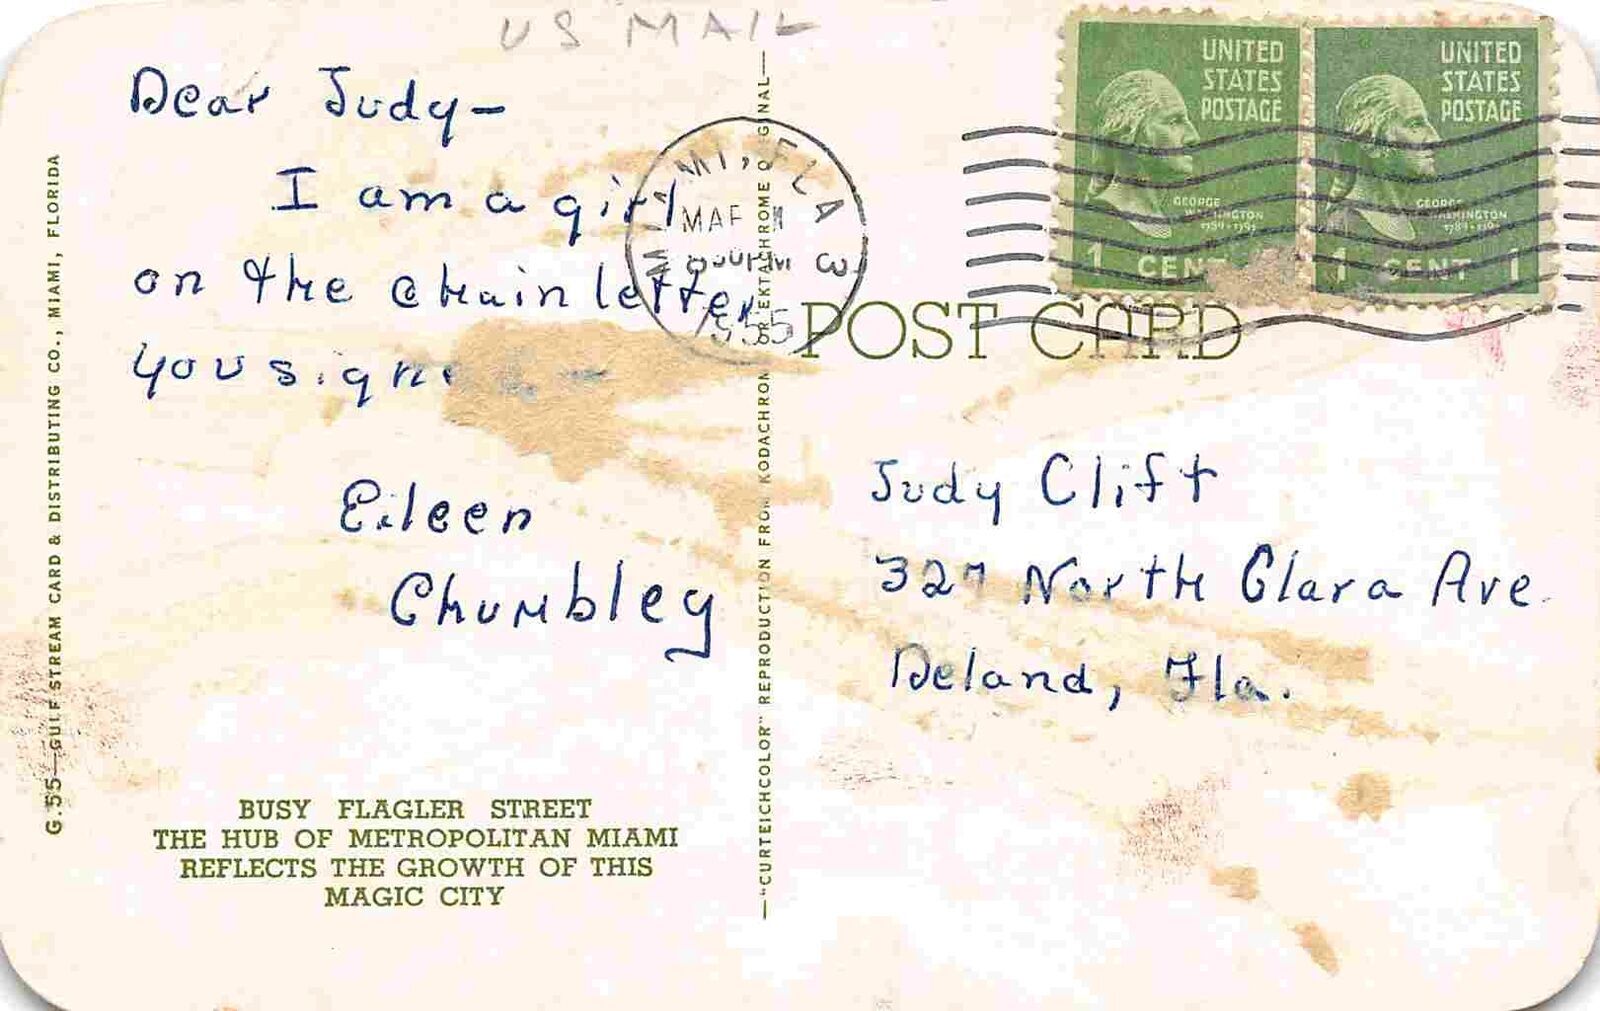 US MAIL
Dear Judy-
I am a girl
on the chain letter
you signed -
Eileen
Chumbley
BUSY FLAGLER STREET
THE HUB OF METROPOLITAN MIAMI
REFLECTS THE GROWTH OF THIS
MAGIC CITY
G.55—GULF STREAM CARD & DISTRIBUTING CO., MIAMI, FLORIDA
—"CURTEICHCOLOR" REPRODUCTION FROM KODACHROME OR EKTACHROME ORIGINAL—
MIAMI, FLA 3
1955
UNITED
STATES
POSTAGE
GEORGE
WASHINGTON
1 CENT
UNITED
STATES
POSTAGE
GEORGE
WASHINGTON
1 CENT 1
POST CARD
Judy Clift
327 North Clara Ave.
Deland, Fla.